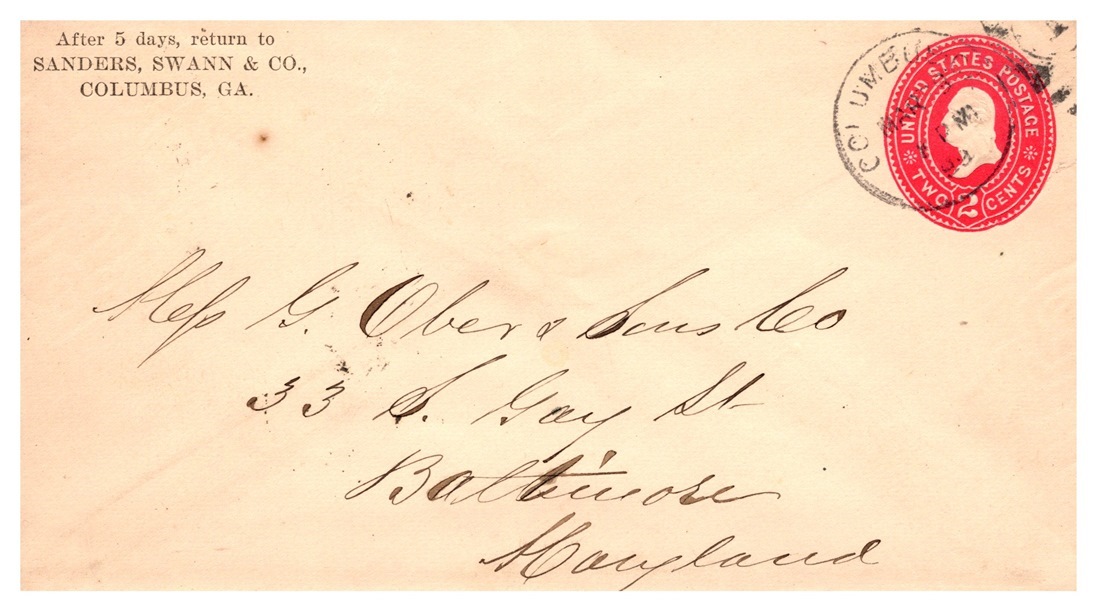 After 5 days, return to
SANDERS, SWANN & CO.,
COLUMBUS, GA.
COLUMBU
PM
UNITED STATES POSTAGE
TWO 2 CENTS
Mess G. Ober & Sons Co
33 S. Gay St
Baltimore
Maryland